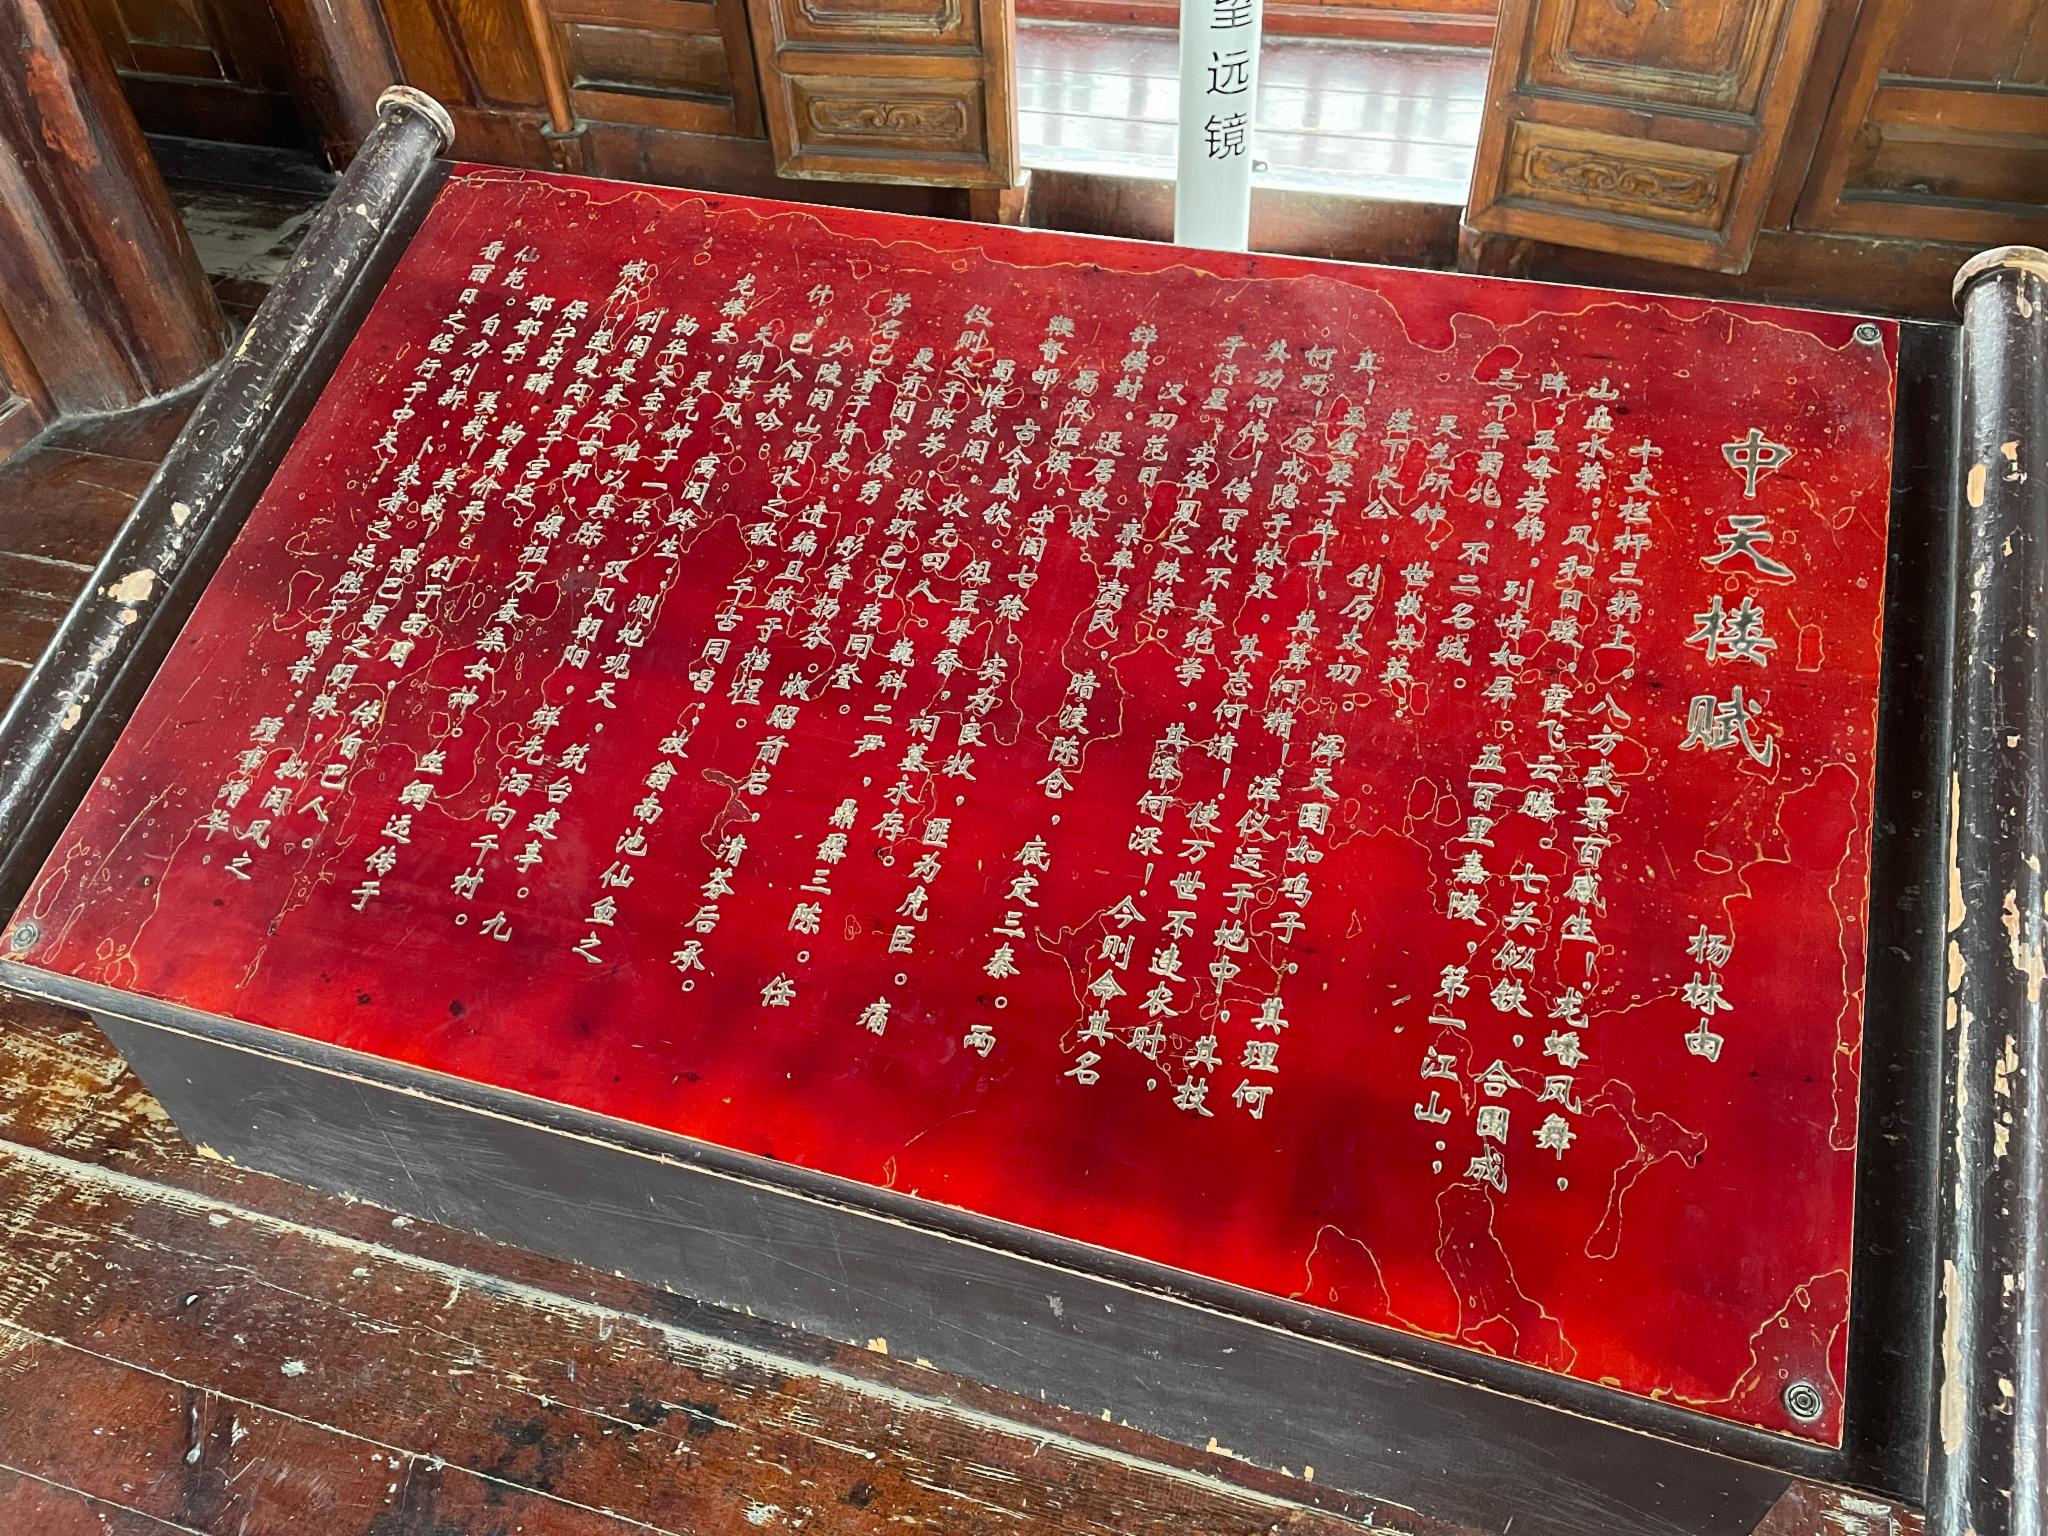 望远镜
中天楼赋
杨林由
十丈栏杆三折上,八方成景百感生!龙蟠凤舞,
山岛水萦;风和日暖,霞飞云腾。七关似铁,合围成
阵;五峰若锦,列峙如屏。五百里嘉陵,第一江山;
三千年蜀北,不二名城。
灵气所钟,世载其英。
落下长公,创历太初。浑天国如鸡子,其理何
真!五星聚于牛斗,其算何精!浑仪运于地中,其技
何巧!历成隐于林泉,其志何清!使万世不违农时,
其功何伟!传百代不失绝学,其泽何深!今则命其名
于行星,实华夏之殊荣。
汉初范目,亲率賨民,暗渡陈仓,底定三秦。两
辞侯封,退居故林。
蜀汉桓侯,守阆七稔。实为良牧,匪为虎臣。痛
鞭督邮,古今咸钦。俎豆馨香,祠墓永存。
蜀惟我阆,状元四人。巍科二尹,鼎鼐三陈。任
仪则处于联芳,张环已兄弟同登。
更有阆中俊秀,彤管扬芬。淑昭前名,清芬后承。
芳名已著于青史,遗编且藏于档程。
少陵阆山阆水之歌,千古同唱;放翁南池仙鱼之
什,巴人共吟。
天纲淳风,寓阆终生;测地观天,筑台建亭。九
龙捧圣,灵气钟于一点;双凤朝阳,祥光洒向千村。
物华天宝,难以具陈。
利阆是蚕丛古都,嫘祖乃蚕桑女神。丝绸远传于
域外,莲缎内贡于宫廷。
保宁蒸醋,物美价平,创于西周,传自巴人。
郁郁乎,美哉!美哉!黑巴蜀之明珠,拟阆风之
仙苑。自力创新,卜来者之远胜于畴昔;踵事增华,
看丽日之经行于中天!